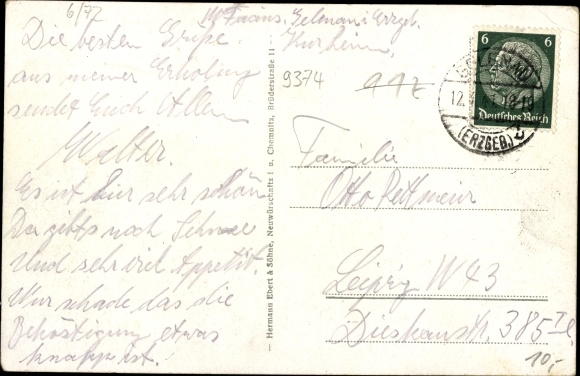 6/77
Die besten Grüße
aus meiner Erholung
sendet Euch Allen
Walter.
Es ist hier sehr schön
Da gibts noch Schnee
Und sehr viel Appetit.
Nur schade das die
Beköstigung etwas
knapp ist.
Kurheim,
9374
Hermann Ebert & Söhne, Neuwürschnitz i. u. Chemnitz, Brüderstraße 11
6 6
Deutsches Reich
12.
(ERZGEB.)
Familie
Otto Rettmeier
Leipzig W 43
Dieskaustr. 385 I l.
10,-